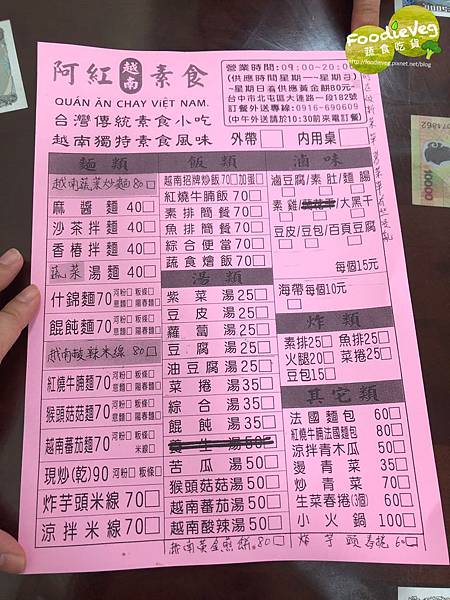 FoodieVeg
蔬食吃貨
http://foodieveg.pixnet.net/blog
阿紅越南素食
QUÁN ĂN CHAY VIỆT NAM.
台灣傳統素食小吃
越南獨特素食風味
營業時間:09:00~20:00
(供應時間星期一~星期日)
~星期日着供應黃金餅80元~
台中市北屯區大連路一段182號
訂餐外送專線:0916-690609
(中午外送請於10:30前來電訂餐)
外帶□ 內用桌
麵類
越南蔬菜炒麵80□
麻醬麵40□
沙茶拌麵40□
香椿拌麵40□
蔬菜湯麵40□
什錦麵70 河粉□ 粄條□ 意麵□ 陽春麵□
餛飩麵70 河粉□ 粄條□ 意麵□ 陽春麵□
越南酸辣米線80□
紅燒牛腩麵70 河粉□ 粄條□ 意麵□ 陽春麵□
猴頭菇菇麵70 河粉□ 粄條□ 意麵□ 陽春麵□
越南番茄麵70 河粉□ 粄條□ 米線□
現炒(乾)90 河粉□ 粄條□
炸芋頭米線70□
涼拌米線70□
飯類
越南招牌炒飯70□加蛋□
紅燒牛腩飯70□
素排簡餐70□
魚排簡餐70□
綜合便當70□
蔬食燴飯70□
湯類
紫菜湯25□
豆皮湯25□
蘿蔔湯25□
豆腐湯25□
油豆腐湯25□
菜捲湯35□
綜合湯35□
餛飩湯35□
養生湯50□
苦瓜湯50□
猴頭菇菇湯50□
越南番茄湯50□
越南酸辣湯50□
越南黃金煎餅80□
滷味
滷豆腐/素肚/麵腸
□ □ □
素雞/蘭花干/大黑干
□ □ □
豆皮/豆包/百頁豆腐
□ □ □
每個15元
海帶每個10元
□
炸類
素排25□ 魚排25□
火腿20□ 菜捲25□
豆包15□
其它類
法國麵包60□
紅燒牛腩法國麵包80□
涼拌青木瓜50□
燙青菜35□
炒青菜70□
生菜春捲(3個)60□
小火鍋100□
炸芋頭春捲60□
10000